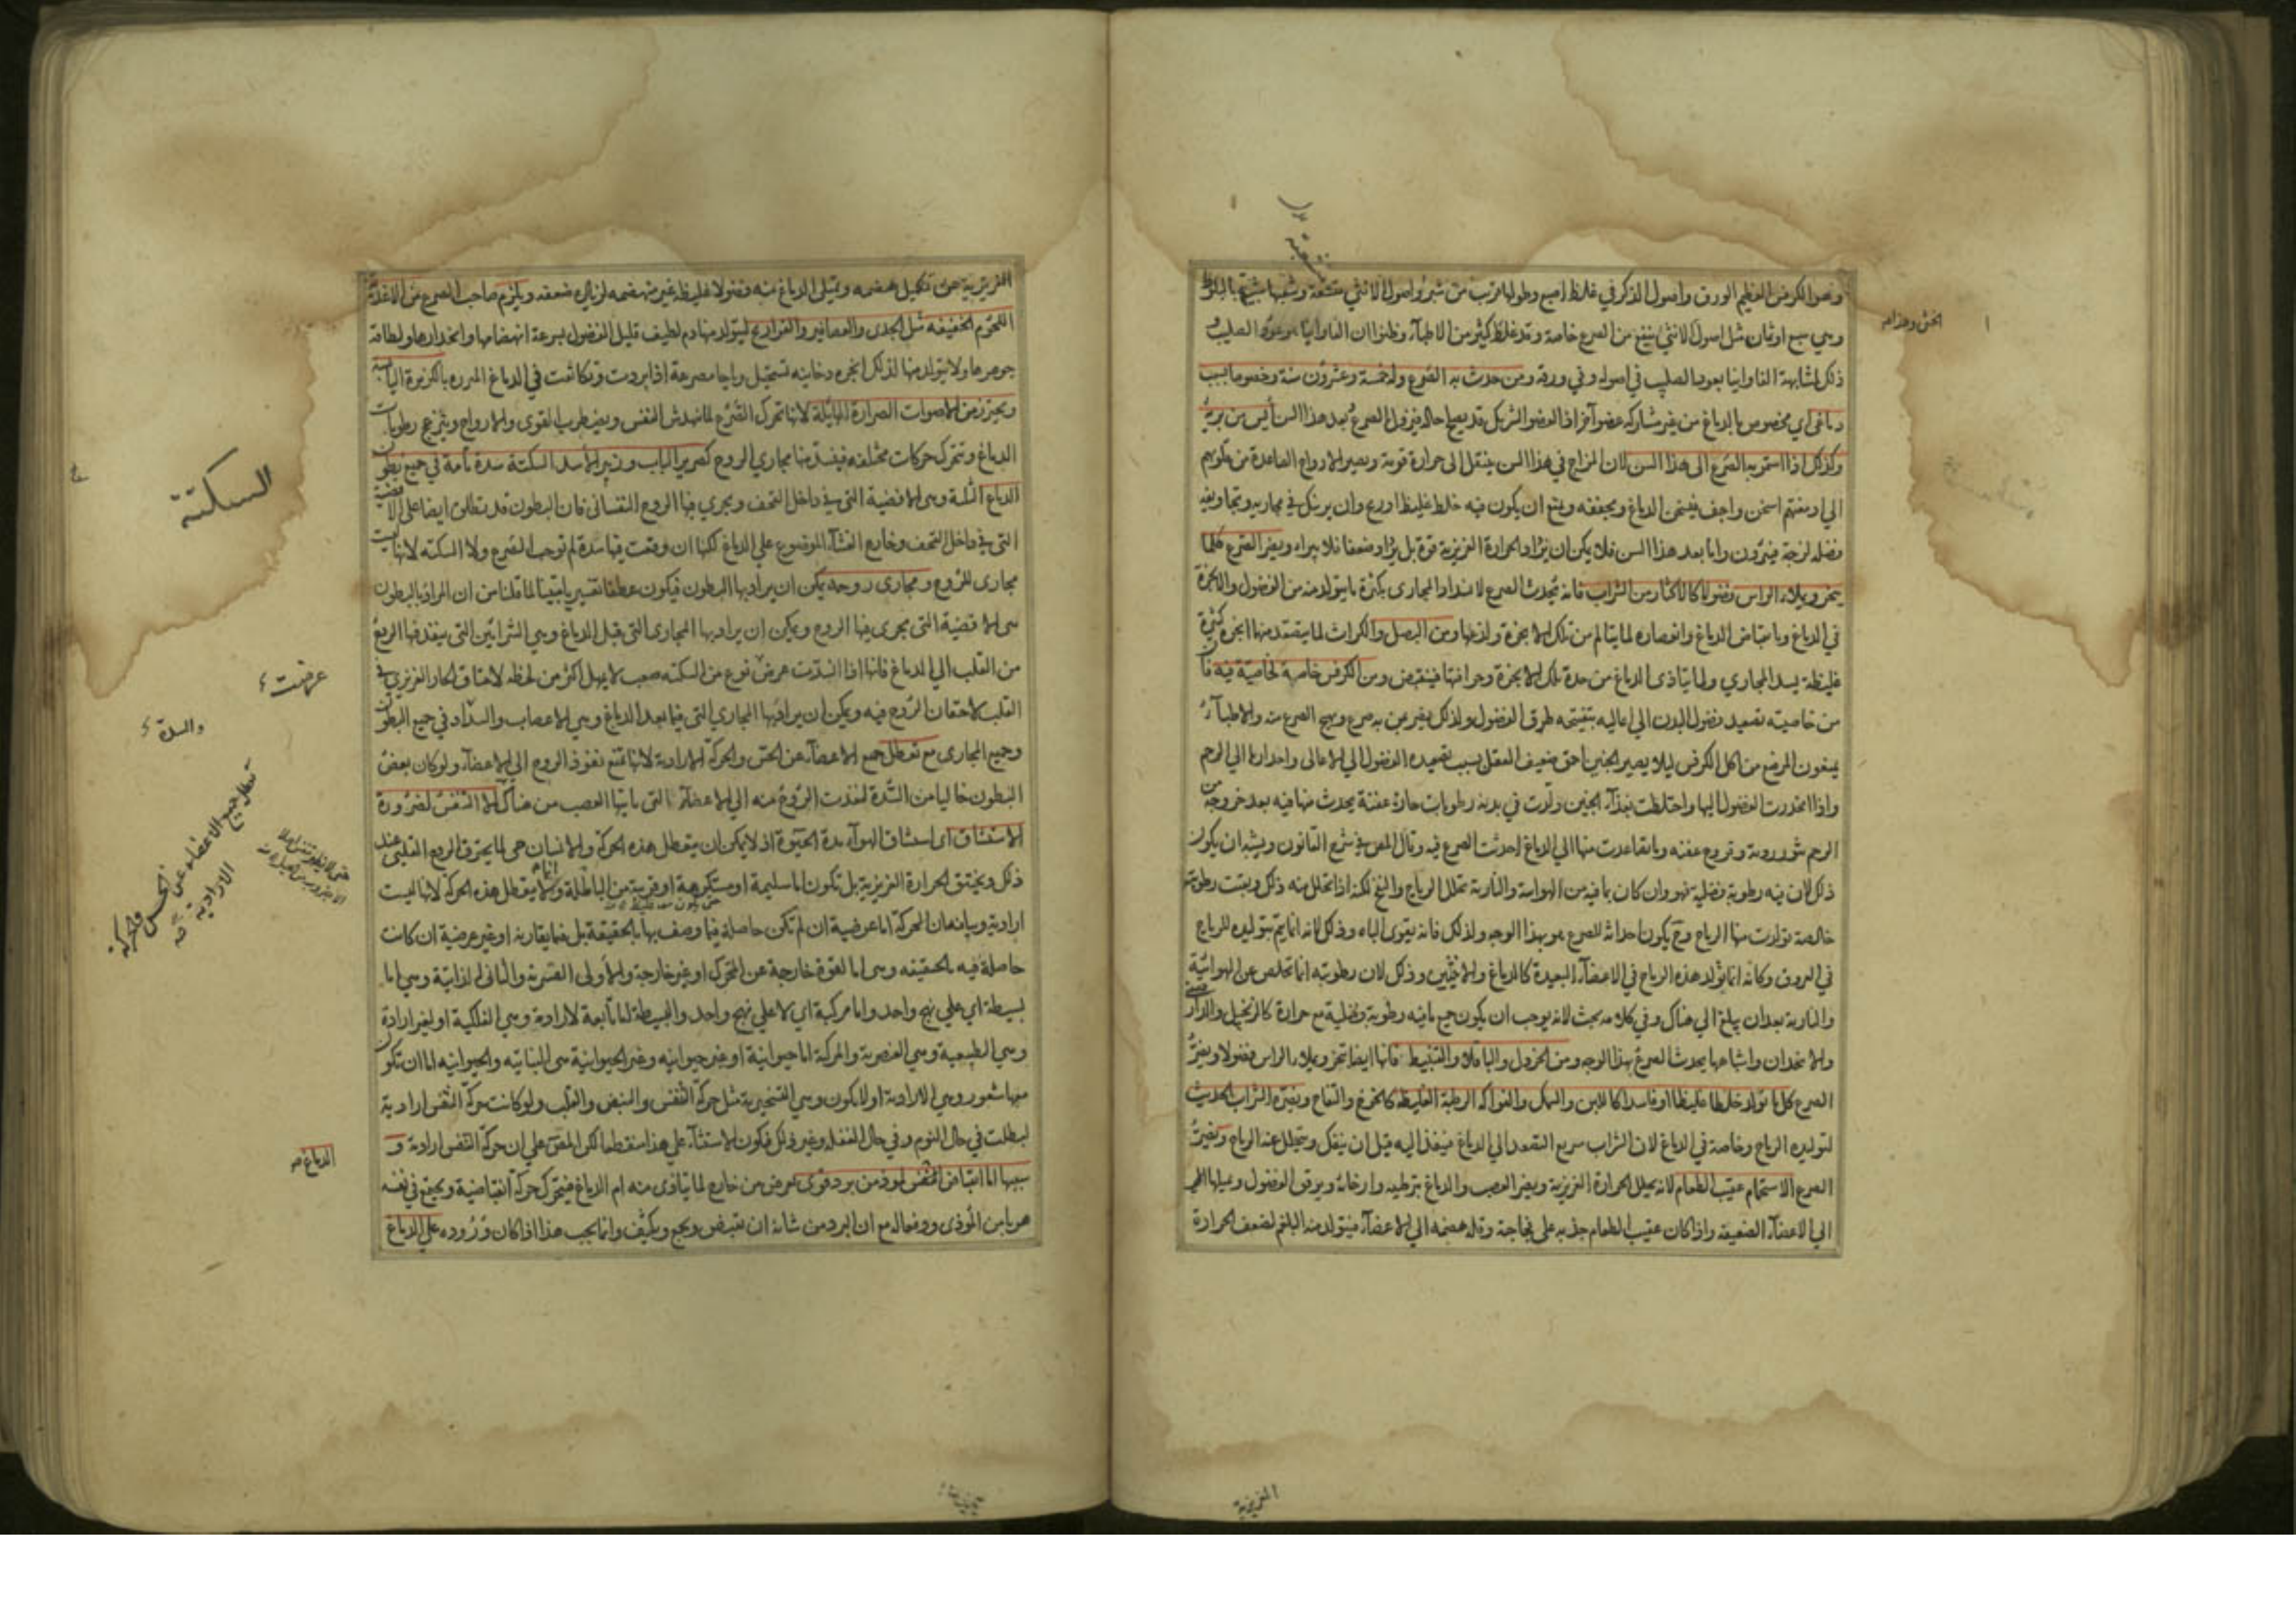 وهو الكرفس العظيم الورق واصول الذكر في غلظ اصبع وطولها قرب من شبر واصول الانثي متشعبة وشعبها شبيهة بالبلوط
وهي سبع او ثمان مثل اصول الانثي ينفع من الصرع خاصة وقد غلط كثير من الاطباء وظنوا ان الفاوانيا هو عود الصليب و
ذلك لمشابهة الفاوانيا بعود الصليب في اصوله وفي ورقه ومن حدث به الصرع وله خمسة وعشرون سنة وخصوصا بسبب
دماغي اي مخصوص بالدماغ من غير مشاركة عضو آخر اذ العضو الشريك قد يصلح حاله فيزول الصرع بعد هذا السن أيس من برئه
وكذلك اذا استمر به الصرع الى هذا السن لان المزاج في هذا السن ينتقل الى حرارة قوية ويصير الارواح الصاعدة من قلوبهم
الي ادمغتهم اسخن واجف فيسخن الدماغ ويجففه ويمنع ان يكون فيه خلط غليظ اوريح وان يرتبك في مجاريه وتجاويفه
فضله لزجة فيبرؤن واما بعد هذا السن فلا يمكن ان يزداد الحرارة الغريزية قوة بل يزداد ضعفا فلا يبرأ ويضر الصرع كلما
يبخر ويملاء الراس فضولا كالاكثار من الشراب فانه يحدث الصرع لانسداد المجارى بكثرة ما يتولد منه من الفضول والابخرة
في الدماغ وبانقباض الدماغ وانعصاره لما يتالم من تلك الابخرة ولذعها ومن البصل والكراث لما يتصعد منها ابخرة كثيرة
غليظة يسد المجاري ولما يتاذى الدماغ من حدة تلك الابخرة وحرافتها فينقبض ومن الكرفس خاصة لخاصية فيه فان
من خاصيته تصعيد فضول البدن الي اعاليه بتفتيحه طرق الفضول ولذلك يضر من به صرع ويهيج الصرع والاطباء
يمنعون المرضع من اكل الكرفس ليلا يصير الجنين احمق ضعيف العقل بسبب تصعيده الفضول الي الاعالى واحدارها الي الرحم
واذا انحدرت الفضول اليها واختلطت بغذاء الجنين ولدت في بدنه رطوبات حادة عفنة يحدث منها فيه بعد خروجه من
الرحم بثور ردية وقروح عفنه وما تصاعدت منها الي الدماغ احدثت الصرع فيه وقال المص في شرح القانون ويشبه ان يكون
ذلك لان فيه رطوبة فضلية فهو وان كان بما فيه من الهوائية والنارية تحلل الرياح والنفخ لكنه اذا تحلل منه ذلك وبقيت رطوبته
خالصة تولدت منها الرياح وح يكون احداثه للصرع هو بهذا الوجه ولذلك فانه يقوى الباه وذلك لانه انما يتم بتوليده للرياح
في العروق وكانه انما يولد هذه الرياح في الاعضاء البعيدة كالدماغ والانثيين وذلك لان رطوبته انما تخلص عن الهوائية
والنارية بعد ان يبلغ الي هناك وفي كلامه بحث لانه يوجب ان يكون جميع ما فيه رطوبة فضلية مع حرارة كالزنجبيل والدار
والانجدان واشباهها يحدث الصرع بهذا الوجه ومن الخردل والباقلاء والقنبيط فانها ايضا تبخر ويملاء الراس فضولا ويضر
الصرع كل ما تولد خلطا غليظا او فاسدا كاللبن والسمك والفواكه الرطبة الغليظة كالخوخ والتفاح ويضره الشراب الحديث
لتوليده الرياح وخاصة في الدماغ لان الشراب سريع التصعد الي الدماغ فينفذ اليه قبل ان ينفك ويتحلل عنه الرياح ويضر
الصرع الاستحمام عقيب الطعام لانه يحلل الحرارة الغريزية ويضر العصب والدماغ بترطيبه وارخائه ويرقق الفضول ويسيلها
الي الاعضاء الضعيفة واذا كان عقيب الطعام جذبه على فجاجة وقلة هضمه الي الاعضاء فيتولد منه البلغم لضعف الحرارة
الغريزية
الغريزية عن تكميل هضمه ويمتلى الدماغ منه فضولا غليظة غير منهضمه لزيادة ضعفه ويلزم صاحب الصرع من الاغذية
اللحوم الخفيفه مثل الجدى والعصافير والفراريج ليتولد منها دم لطيف قليل الفضول بسرعة انهضامها وانحدارها ولطافة
جوهرها ولا يتولد منها لذلك ابخرة دخانيه تستحيل رياحا مصرعة اذا بردت وتكاثفت في الدماغ المبرده بالكزبرة اليابسة
ويحترز من الاصوات الصرارة الهايلة لانها تحرك الصرع لما يندهش النفس ويضطرب القوى والارواح وينزعج رطوبات
الدماغ وتتحرك حركات مختلفه فينسد منها مجاري الروح كصرير الباب وزئير الاسد السكتة سدة تامة في جميع بطون
الدماغ الثلثة وهي الافضية التي في داخل القحف ويجري فيها الروح النفساني فان البطون قد تطلق ايضا على الافضية
التي في داخل القحف وخارج الغشاء الموضوع على الدماغ لكنها ان وقعت فيها سدة لم توجب الصرع ولا السكتة لانها ليست
مجارى للروح ومجارى روحه يمكن ان يراد بها البطون فيكون عطفا تفسيريا مبينا لما قلنا من ان المراد بالبطون
هي الافضية التي يجرى فيها الروح ويمكن ان يراد بها المجارى التي قبل الدماغ وهي الشرائين التي ينفذ فيها الروح
من القلب الي الدماغ فانها اذا انسدت عرض نوع من السكتة صعب لا يمهل اكثر من لحظة لاختناق الحار الغريزي في
القلب لاحتقان الروح فيه ويمكن ان يراد بها المجاري التي فيما بعد الدماغ وهي الاعصاب والسداد في جميع البطون
وجميع المجارى مع تعطل جميع الاعضاء عن الحس والحركة الارادية لانها تمنع نفوذ الروح الي الاعضاء ولو كان بعض
البطون خاليا من السدة لنفذت الروح منه الي الاعضاء التي ياتيها العصب من هناك الا التنفس لضرورة
الاستنشاق اي استنشاق الهواء مدة الحيوة اذ لا يمكن ان يتعطل هذه الحركة والانسان حي لما يحترق الروح القلبي عند
ذلك ويختنق الحرارة الغريزية بل تكون اما سليمة او مستكرهة او قريبة من الباطلة وانما لا يتعطل هذه الحركة لانها ليست
ارادية وبيانه ان الحركة اما عرضية ان لم تكن حاصلة فيما وصف بها بالحقيقة بل فيما يقارنه او غير عرضية ان كانت
حاصلة فيه بالحقيقه وهي اما لقوة خارجة عن المتحرك او غير خارجة والاولى القسرية والثاني الذاتية وهي اما
بسيطة اي على نهج واحد واما مركبة اي لا على نهج واحد والبسيطة اما تابعة لارادة وهي الفلكية او لغير ارادة
وهي الطبيعية وهي العنصرية والمركبة اما حيوانية او غير حيوانيه وغير الحيوانية هي النباتيه والحيوانيه اما ان تكون
معها شعور وهي الارادية او لا يكون وهي التسخيرية مثل حركة التنفس والنبض والقلب ولو كانت حركة التنفس ارادية
لبطلت في حال النوم وفي حال الغفلة وغير ذلك فيكون الاستثناء على هذا منقطعا لكن المص على ان حركة التنفس ارادية و
سببها اما انقباض الدماغ لموذ من برد قوى عرض من خارج لما يتاذى منه ام الدماغ فيتحرك حركة انقباضية ويجتمع في نفسه
هربا من الموذي ودفعا له مع ان البرد من شانه ان يقبض ويجمع ويكثف وانما يجب هذا اذا كان وروده على الدماغ
السكتة
عرضت
والسدة
تعطل جميع الاعضاء عن الحس والحركة
الارادية
الدماغ